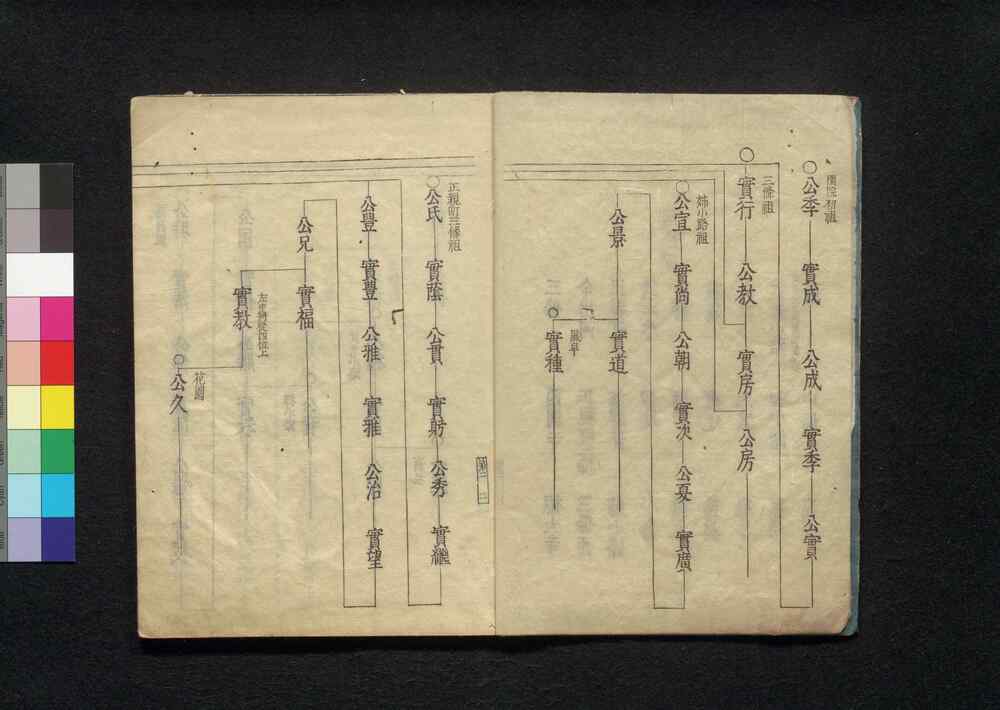 閑院初祖
公季 實成 公成 實季 公實
三條祖
實行 公教 實房 公房
姉小路祖
公宣 實尚 公朝 實次 公夏 實廣
公景
實道
風早
實種
正親町三條祖
公氏 實蔭 公貫 實躬 公秀 實繼
公豐 實豐 公雅 實雅 公治 實望
公兄
實福
左中將從四位上
實教
花園
公久